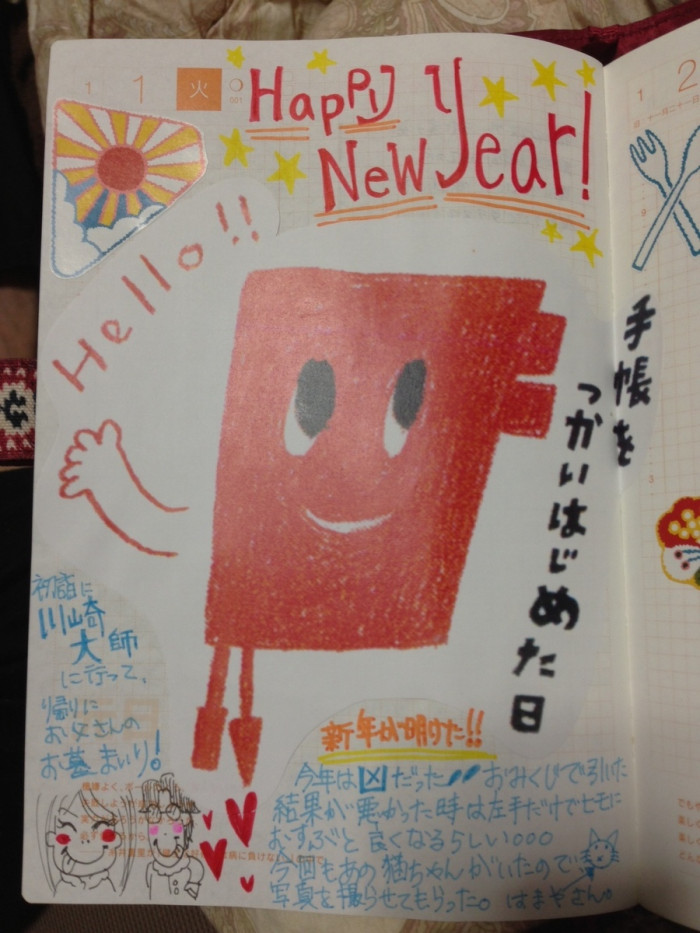 1
1
火
001
Happy
New Year!
Hello!!
手帳を
つかいはじめた日
初詣に
川崎
大師
に行って、
帰りに
お父さんの
お墓まいり!
新年が明けた!!
今年は凶だった おみくじで引いた
結果が悪かった時は左手だけでヒモに
おすぶと良くなるらしい○○○
今回もあの猫ちゃんがいたので
写真を撮らせてもらった。はまやさん。
1 2